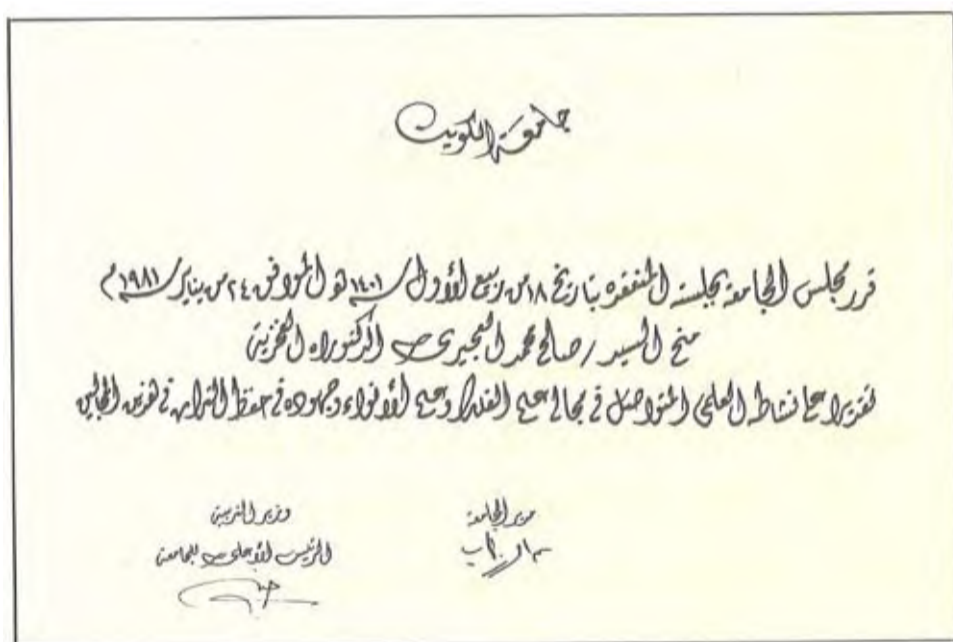 جامعة الكويت
قرر مجلس الجامعة بجلسته المنعقدة بتاريخ ١٨ من ربيع الأول ١٤٠١ هـ الموافق ٢٤ من يناير ١٩٨١ م
منح السيد / صالح محمد العجيري الدكتوراه الفخرية
تقديرا على نشاطه العلمي المتواصل في مجال علم الفلك وعلم الأنواء وجهوده في حفظ التراث في هذين المجالين
مدير الجامعة
وزير التربية
الرئيس الأعلى للجامعة